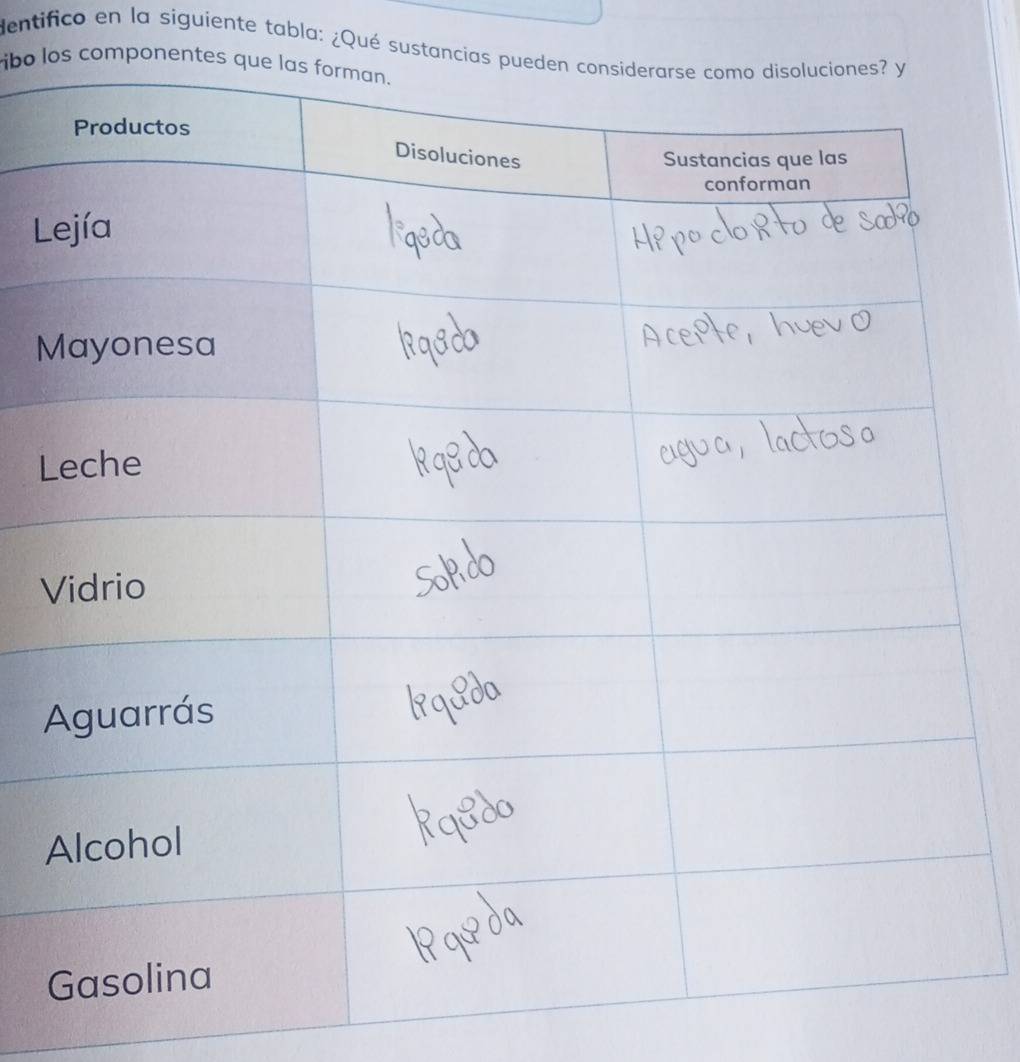 dentifico en la siguiente tabla: ¿Qué sustancias pueden considerarse como disoluciones? y
ribo los componentes que las forman.
Productos
Disoluciones
Sustancias que las
conforman
Lejía
liquida
Hipoclorito de sodio
Mayonesa
liquida
Aceite, huevo
Leche
liquida
agua, lactosa
Vidrio
solido
Aguarrás
liquida
Alcohol
liquido
Gasolina
liquida